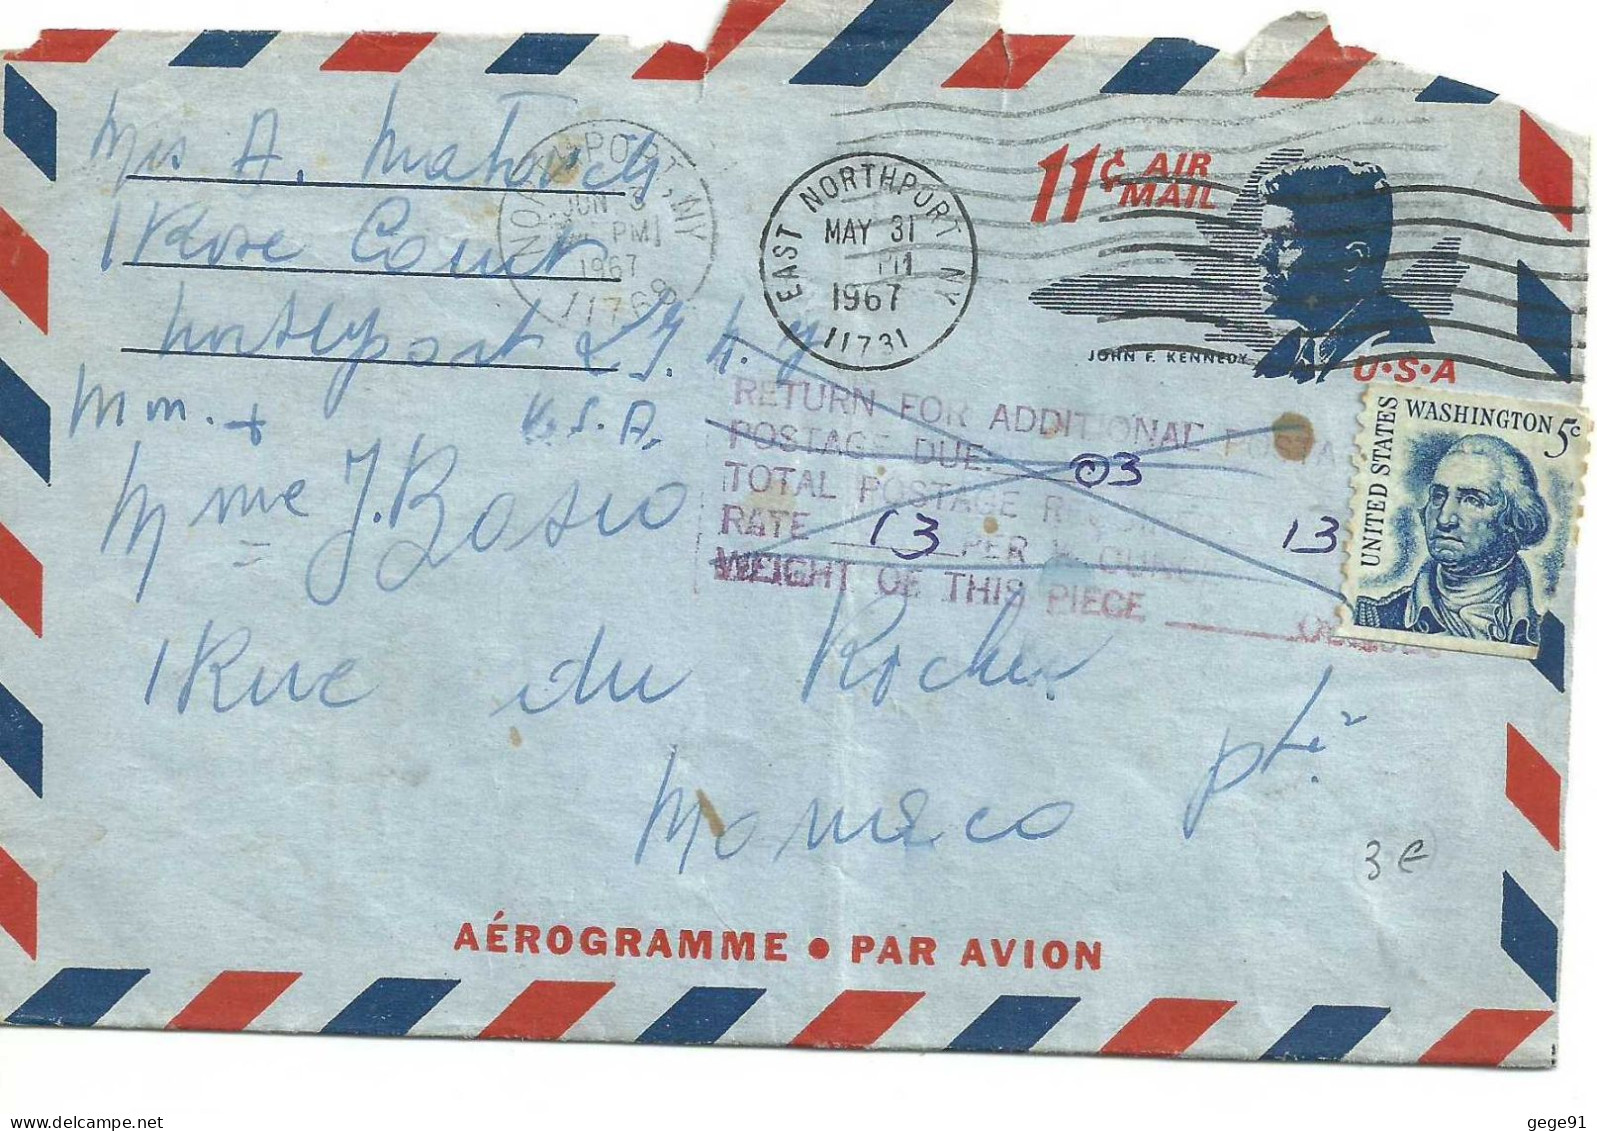 Mrs A. Matovich
1 Rose Court
Northport L.I. N.Y
U.S.A.
NORTHPORT, NY
JUN 3
PM
1967
11768
EAST NORTHPORT NY
MAY 31
PM
1967
11731
11¢ AIR MAIL
JOHN F. KENNEDY
U·S·A
UNITED STATES
WASHINGTON 5c
RETURN FOR ADDITIONAL POSTA
POSTAGE DUE 03
TOTAL POSTAGE 13
RATE 13 PER OUNCE
WEIGHT OF THIS PIECE
Mm. +
Mme J. Bosio
1 Rue du Rocher
Monaco Pté
3 €
AÉROGRAMME • PAR AVION
delcampe.net
gege91